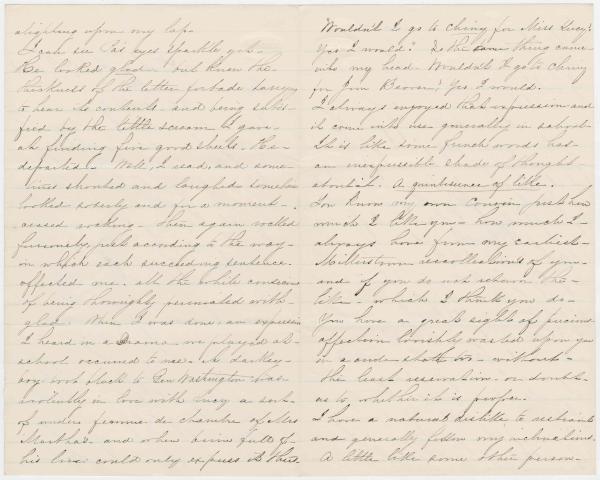 alighting upon my lap.
I can see Pa's eyes sparkle yet.
He looked glad but knew the
thickness of the letter forbade tarrying
to hear its contents and being satis-
fied by the little scream I gave
at finding five good sheets. He
departed. Well, I read, and some-
times shouted and laughed
looked soberly and for a moment
ceased rocking. Then again rocked
furiously, just according to the way
in which each succeeding sentence
affected me. All the while conscious
of being thoroughly permeated with
glad. When I was done, an expression
I heard in a Drama we played at
school occurred to me. A darkey
body to Gen Washington was
violently in love with Lucy a sort
of under femme de chambre of Mrs
Martha's and when full of
his love could only express it thus
Wouldn't I go to Chiny for Miss Lucy?
Yes I would! So the same thing came
into my head. Wouldn't I go to Chiny
for Jim Yes, I would.
I always enjoyed that expression and
it came into use generally in school.
It is like some french words has
an inexpressible shade of thought
about it. A quintessence of like.
You know my own Cousin just how
much I like you how much I
always have from my earliest
Millinstown recollections of you
and if you do not return the
like which I think you do
You have a great sight of precious
affection lavishly wasted upon you
in a without
the least reservation or doubt
as to whether it is proper.
I have a natural dislike to restraints
and generally follow my inclinations.
A little like some other person